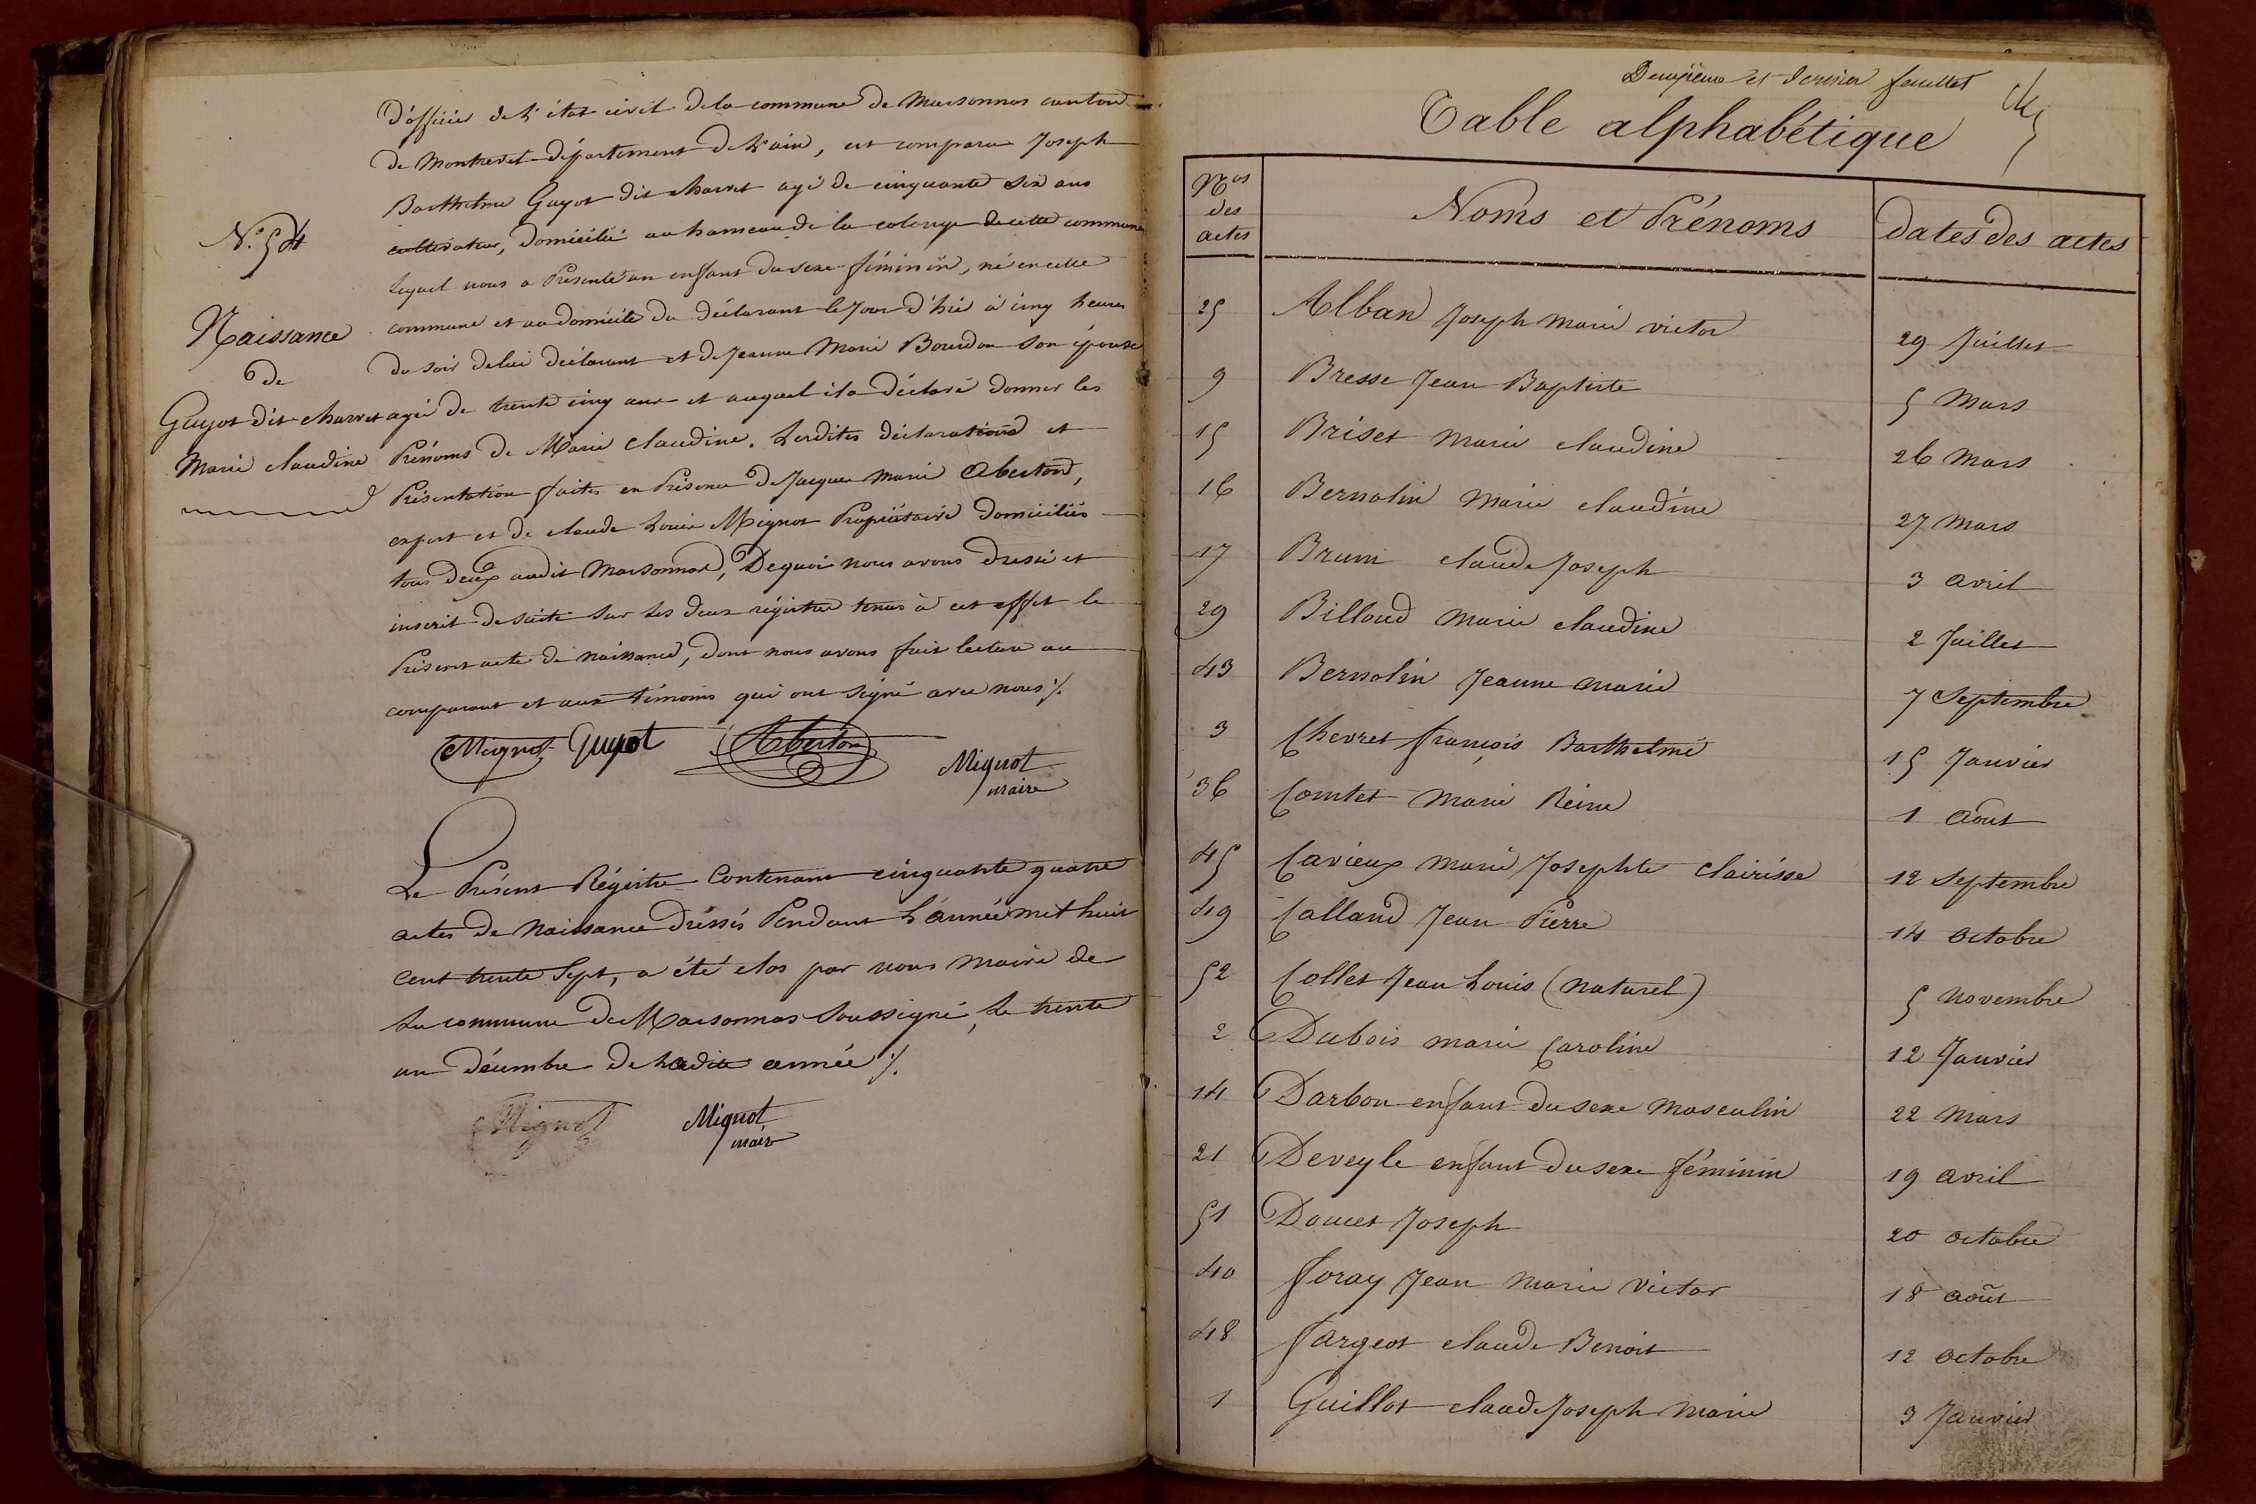 d'officier de l'état civil de la commune de Marsonnas canton
de Montrevel département de l'ain, est comparu Joseph
Barthelme Guyot dit charvet agé de cinquante six ans
cultivateur, domicilié au hameau de la colonge de cette commune
lequel nous a Présenté un enfant du sexe féminin, né en cette
commune et au domicile du déclarant le jour d'hié à cinq heures
du soir de lui déclarant et de jeanne Marie Bourdon son épouse
agée de trente cinq ans et auquel il a déclaré donner les
Prénoms de Marie Claudine. Lesdites déclarations et
Présentation faites en Présence de Jacques Marie Aberton,
expert et de claude Louis Mignot Propriétaire domiciliés
tous deux audit Marsonnas, De quoi nous avons dressé et
inscrit de suite sur les deux régistres tenus à cet effet le
Présent acte de naissance, dont nous avons fait lecture au
comparant et aux témoins qui ont signé avec nous ./.
N.° 54
Naissance
de
Guyot dit charvet
Marie claudine
Mignot Guyot Aberton
Mignot
maire
Le Présent Régistre Contenant cinquante quatre
actes de Naissance Dréssés Pendant L'année mil huit
cent trente Sept, a été clos par nous Maire de
La commune de Marsonnas Soussigné, Le trente
un Décembre de Ladite année ./.
Mignot Mignot
maire
Deuxième et dernier feuillet
Table alphabétique
Nos des actes Noms et Prénoms dates des actes
25 Alban Joseph Marie victor 29 Juillet
9 Bresse Jean Baptiste 5 Mars
15 Briset Marie claudine 26 Mars
16 Bernolin Marie claudine 27 Mars
17 Brum claude Joseph 3 avril
29 Billoud Marie claudine 2 Juillet
43 Bernolin Jeanne Marie 7 Septembre
3 Chevret françois Barthelmé 15 Janvier
36 Comtet Marie Reine 1 Aout
45 Cavieux Marie Josephte Clairisse 12 Septembre
49 Calland Jean Pierre 14 Octobre
52 Collet Jean Louis (naturel) 5 Novembre
2 Dubois marie Caroline 12 Janvier
14 Darbon enfant du sexe Masculin 22 Mars
21 Deveyle enfant du sexe féminin 19 avril
51 Doucet Joseph 20 octobre
40 foray Jean Marie Victor 18 août
48 fargeot claude Benoit 12 octobre
1 Guillot claude Joseph Marie 3 Janvier